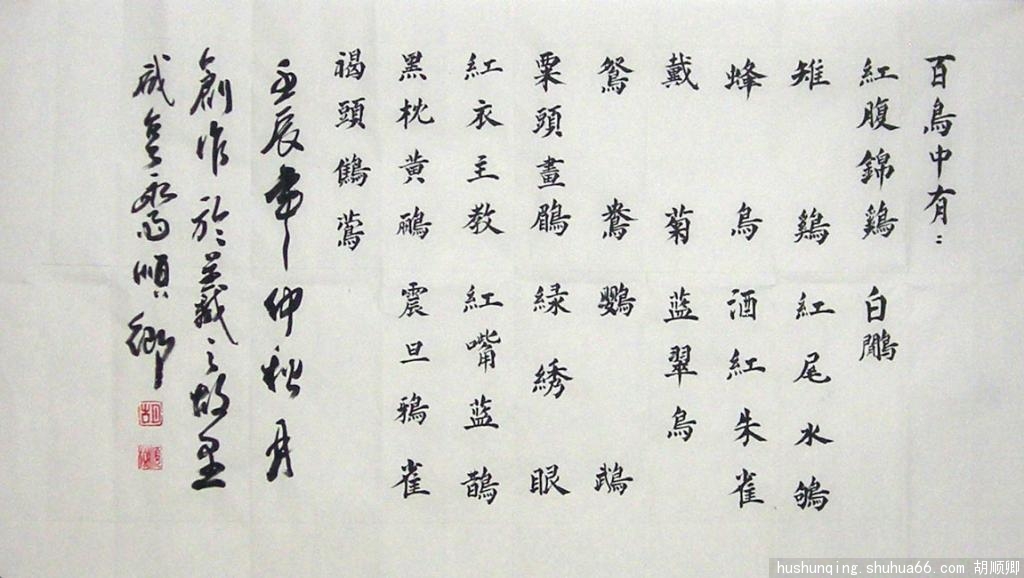 百鳥中有：
紅腹錦鷄 白鷴
雉 鷄 紅尾水鴝
蜂 鳥 酒紅朱雀
戴 菊 蓝翠鳥
鴛 鴦 鸚 鵡
栗頭畫鶥 緑 綉 眼
紅衣主教 紅嘴蓝鵲
黑枕黄鸝 震旦鴉雀
褐頭鶲鶯
壬辰年仲秋月
創作於三藏之故里
順卿
hushunqing.shuhua66.com 胡顺卿